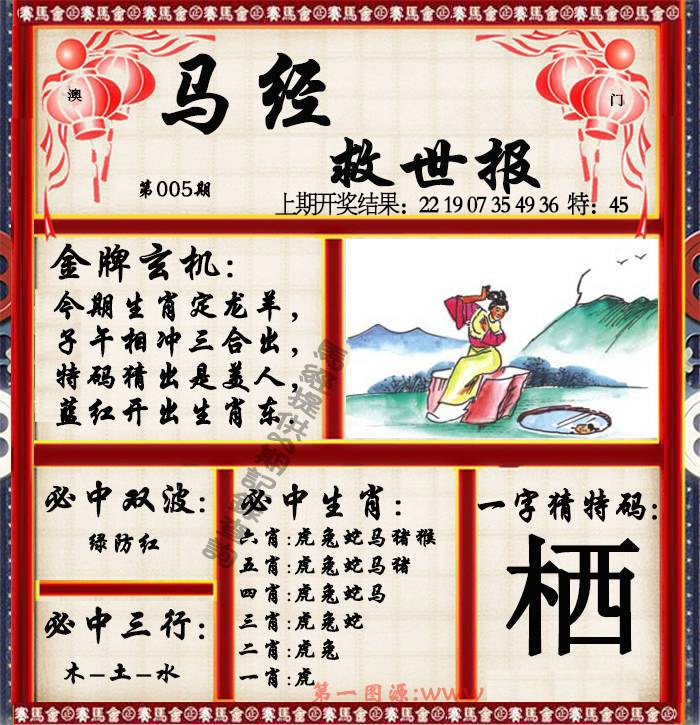 賽馬會 賽馬會 賽馬會 賽馬會 賽馬會 賽馬會 賽馬會 賽馬會
澳
门
马经
救世报
第005期
上期开奖结果：22 19 07 35 49 36 特：45
金牌玄机：
今期生肖定龙羊，
子午相冲三合出，
特码猜出是美人，
蓝红开出生肖东.
必中双波：
绿防红
必中三行：
木—土—水
必中生肖：
六肖:虎兔蛇马猪猴
五肖:虎兔蛇马猪
四肖:虎兔蛇马
三肖:虎兔蛇
二肖:虎兔
一肖:虎
一字猜特码：
栖
第一图源:www